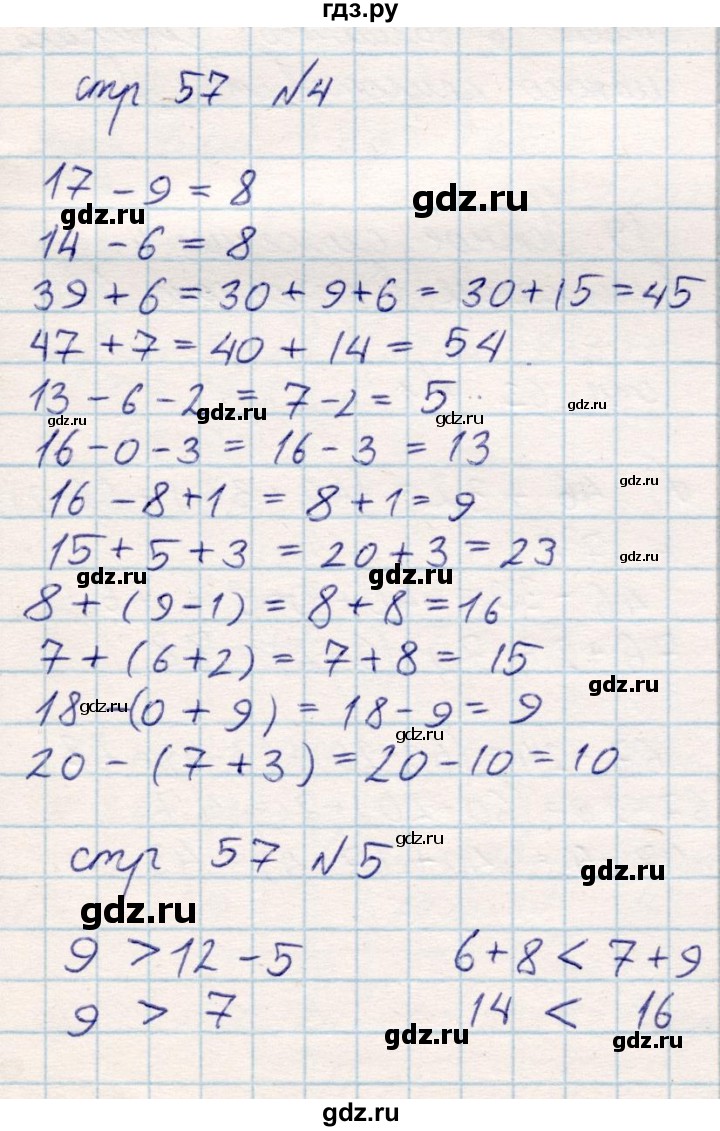 гдз.ру
стр 57 №4
17 - 9 = 8
gdz.ru gdz.ru
14 - 6 = 8
39 + 6 = 30 + 9 + 6 = 30 + 15 = 45
47 + 7 = 40 + 14 = 54
13 - 6 - 2 = 7 - 2 = 5
gdz.ru gdz.ru gdz.ru gdz.ru
16 - 0 - 3 = 16 - 3 = 13
gdz.ru
16 - 8 + 1 = 8 + 1 = 9
15 + 5 + 3 = 20 + 3 = 23
gdz.ru
gdz.ru gdz.ru
8 + (9 - 1) = 8 + 8 = 16
7 + (6 + 2) = 7 + 8 = 15
gdz.ru
18 - (0 + 9) = 18 - 9 = 9
gdz.ru gdz.ru
20 - (7 + 3) = 20 - 10 = 10
gdz.ru
стр 57 №5
gdz.ru
gdz.ru
9 > 12 - 5 6 + 8 < 7 + 9
9 > 7 14 < 16
gdz.ru gdz.ru
gdz.ru